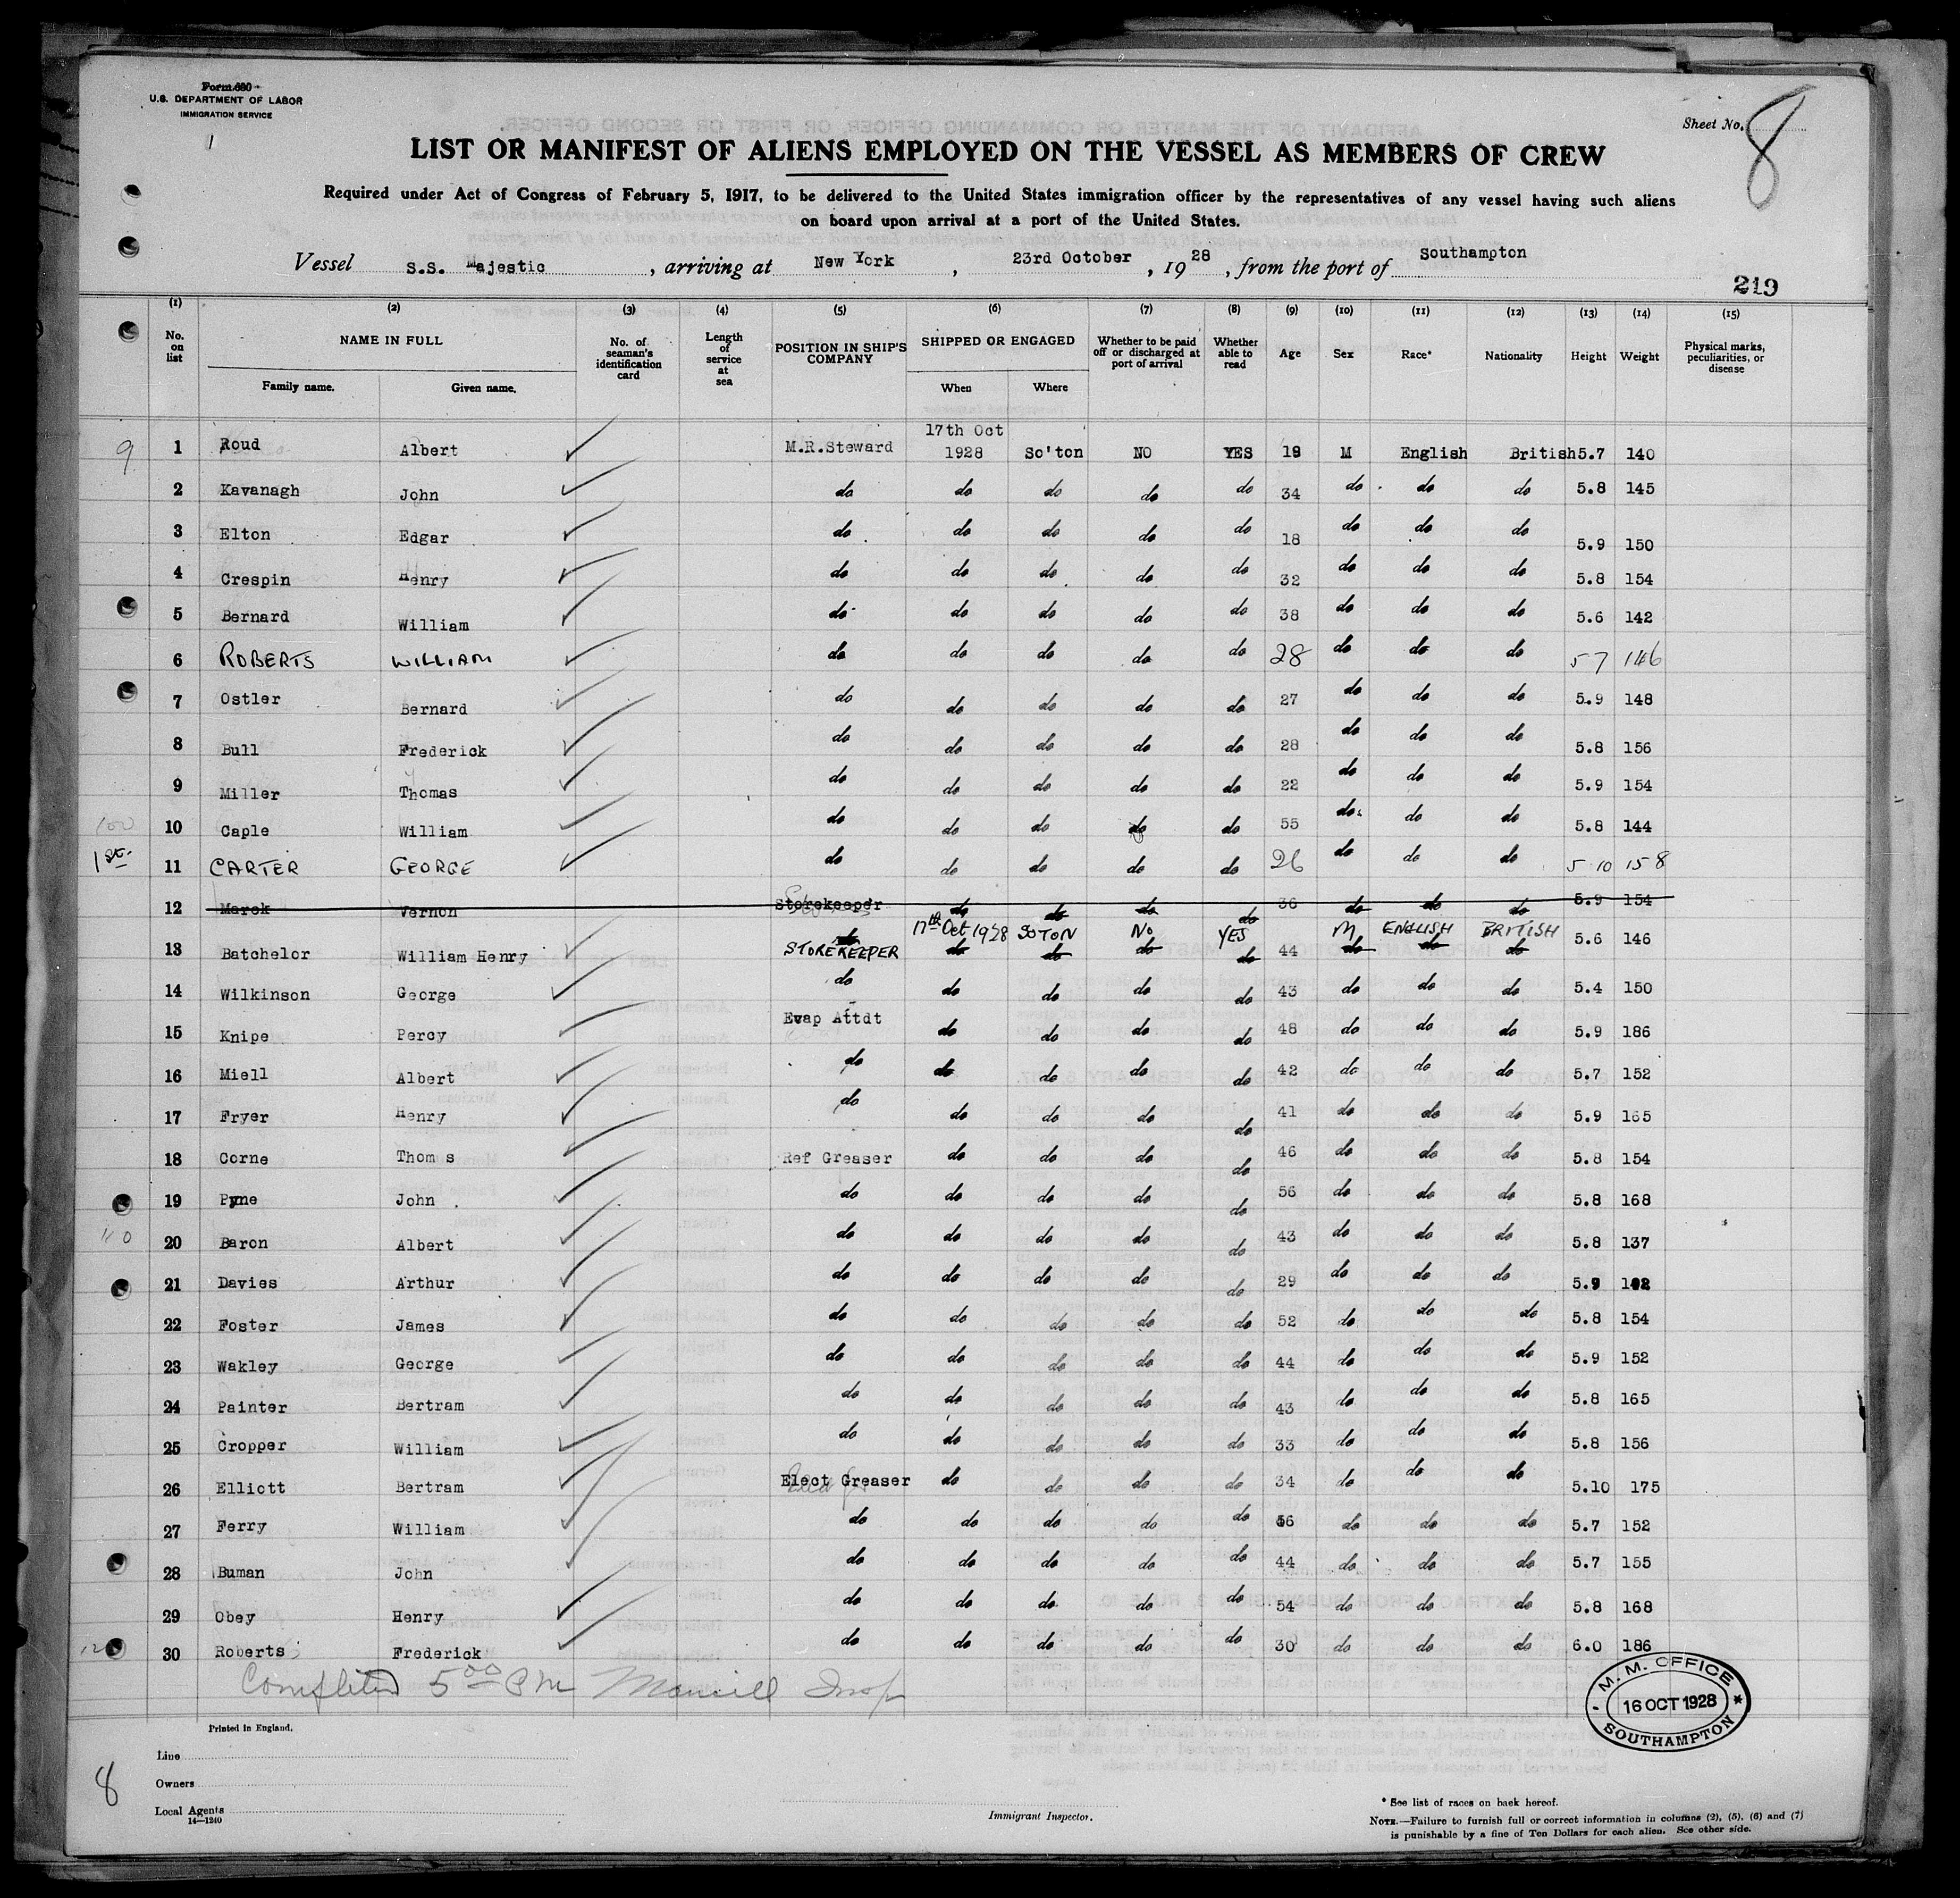 Form 680
U.S. DEPARTMENT OF LABOR
IMMIGRATION SERVICE
1
Sheet No. 8
LIST OR MANIFEST OF ALIENS EMPLOYED ON THE VESSEL AS MEMBERS OF CREW
Required under Act of Congress of February 5, 1917, to be delivered to the United States immigration officer by the representatives of any vessel having such aliens
on board upon arrival at a port of the United States.
Vessel S.S. Majestic, arriving at New York, 23rd October, 1928, from the port of Southampton
219
(1) (2) (3) (4) (5) (6) (7) (8) (9) (10) (11) (12) (13) (14) (15)
No. on list NAME IN FULL Family name. Given name. No. of seaman's identification card Length of service at sea POSITION IN SHIP'S COMPANY SHIPPED OR ENGAGED When Where Whether to be paid off or discharged at port of arrival Whether able to read Age Sex Race* Nationality Height Weight Physical marks, peculiarities, or disease
9 1 Roud Albert M.R.Steward 17th Oct 1928 So'ton NO YES 19 M English British 5.7 140
2 Kavanagh John do do do do do 34 do do do 5.8 145
3 Elton Edgar do do do do do 18 do do do 5.9 150
4 Crespin Henry do do do do do 32 do do do 5.8 154
5 Bernard William do do do do do 38 do do do 5.6 142
6 ROBERTS WILLIAM do do do do do 28 do do do 5 7 146
7 Ostler Bernard do do do do do 27 do do do 5.9 148
8 Bull Frederick do do do do do 28 do do do 5.8 156
9 Miller Thomas do do do do do 22 do do do 5.9 154
100 10 Caple William do do do do do 55 do do do 5.8 144
1st. 11 CARTER GEORGE do do do do do 26 do do do 5 10 158
12 Marck Vernon Storekeeper do do do do 36 do do do 5.9 154
17th Oct 1928 SOTON No YES M ENGLISH BRITISH
13 Batchelor William Henry do STOREKEEPER do do do do 44 do do do 5.6 146
14 Wilkinson George do do do do do 43 do do do 5.4 150
15 Knipe Percy Evap Attdt do do do do 48 do do do 5.9 186
16 Miell Albert do do do do do 42 do do do 5.7 152
17 Fryer Henry do do do do do 41 do do do 5.9 165
18 Corne Thom s Ref Greaser do do do do 46 do do do 5.8 154
19 Pyne John do do do do do 56 do do do 5.8 168
110 20 Baron Albert do do do do do 43 do do do 5.8 137
21 Davies Arthur do do do do do 29 do do do 5.9
22 Foster James do do do do do 52 do do do 5.8 154
23 Wakley George do do do do do 44 do do do 5.9 152
24 Painter Bertram do do do do do 43 do do do 5.8 165
25 Cropper William do do do do do 33 do do do 5.8 156
26 Elliott Bertram Elect Greaser do do do do 34 do do do 5.10 175
27 Ferry William do do do do do do do do 5.7 152
28 Buman John do do do do do 44 do do do 5.7 155
29 Obey Henry do do do do do 54 do do do 5.8 168
30 Roberts Frederick do do do do do 30 do do do 6.0 186
Completed 5 00 PM Insp
M. M. OFFICE
16 OCT 1928
SOUTHAMPTON
Printed in England.
Line
8
Owners
Local Agents
14—1240
Immigrant Inspector.
* See list of races on back hereof.
NOTE.—Failure to furnish full or correct information in columns (2), (5), (6) and (7)
is punishable by a fine of Ten Dollars for each alien. See other side.